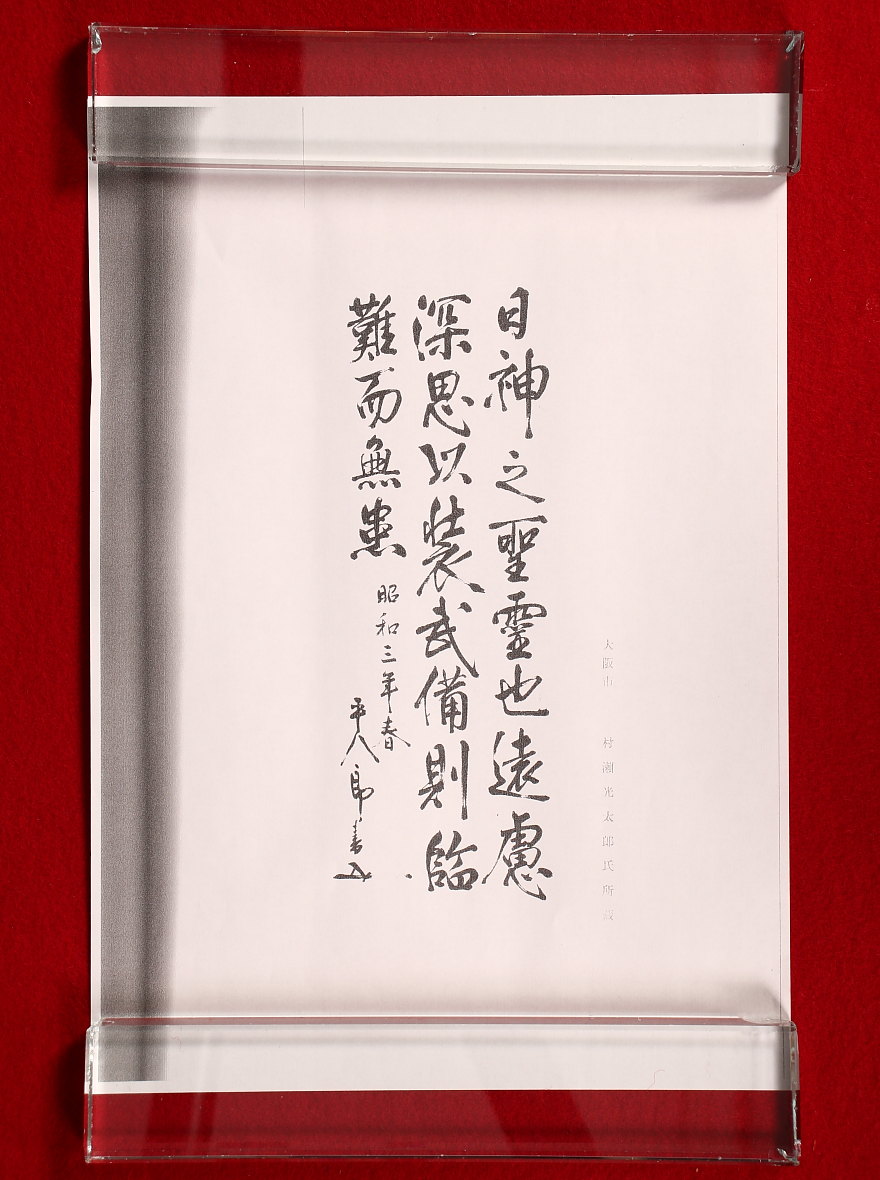 大阪市 村瀬光太郎氏所蔵
日神之聖靈也遠慮
深思以装武備則臨
難而無患
昭和三年春
平八郎書